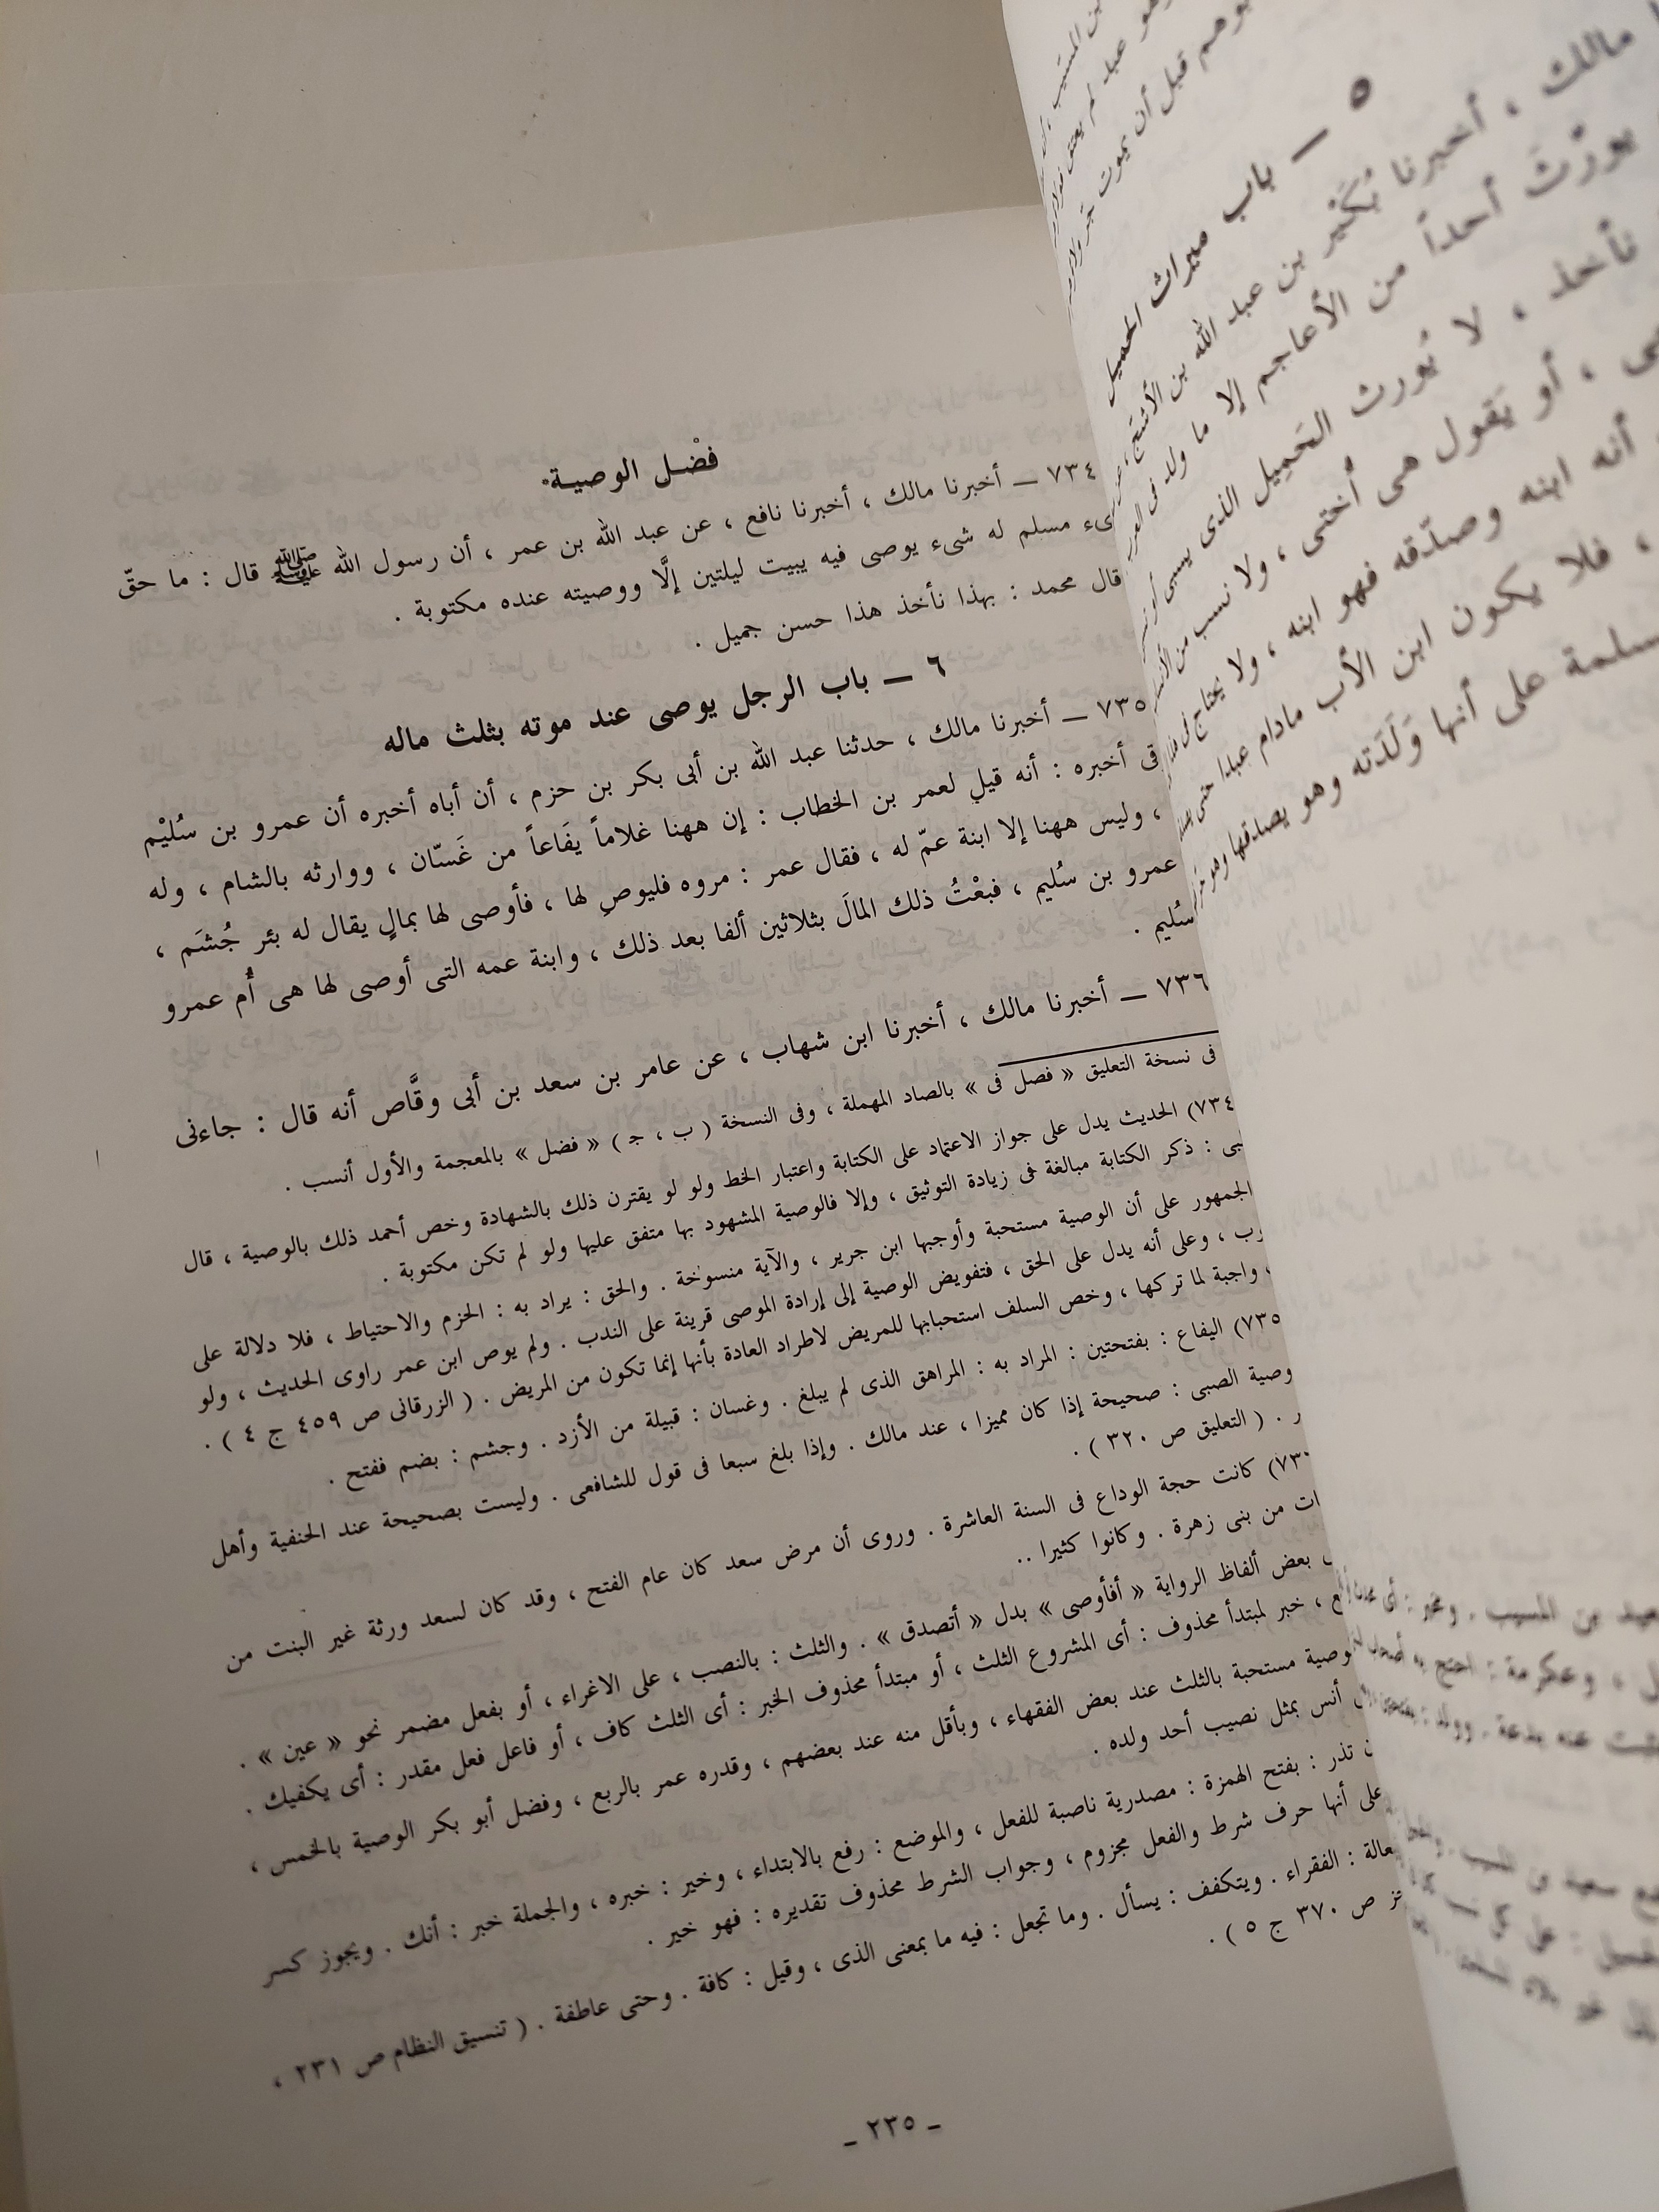 ٥ — باب ميراث الحميل
مالك ، أخبرنا بُكَيْر بن عبد الله بن الأشج ،
يورّثَ أحداً من الأعاجم إلا ما ولد فى العرب
نأخذ ، لا يُورث الحَمِيل الذى يسبى
، أو يَقول هى أُختى ، ولا نسب من
أنه ابنه وصدّقه فهو ابنه ، ولا يحتاج فى
، فلا يكون ابن الأب مادام عبدا حتى
على أنها وَلَدَته وهو يصدقها وهو
فضْل الوصية
٧٣٤ — أخبرنا مالك ، أخبرنا نافع ، عن عبد الله بن عمر ، أن رسول الله ﷺ قال : ما حقّ
ىء مسلم له شىء يوصى فيه يبيت ليلتين إلَّا ووصيته عنده مكتوبة .
قال محمد : بهذا نأخذ هذا حسن جميل .
٦ — باب الرجل يوصى عند موته بثلث ماله
٧٣٥ — أخبرنا مالك ، حدثنا عبد الله بن أبى بكر بن حزم ، أن أباه أخبره أن عمرو بن سُليْم
قى أخبره : أنه قيل لعمر بن الخطاب : إن ههنا غلاماً يفَاعاً من غَسّان ، ووارثه بالشام ، وله
، وليس ههنا إلا ابنة عمّ له ، فقال عمر : مروه فليوصِ لها ، فأوصى لها بمالٍ يقال له بئر جُشَم ،
عمرو بن سُليم ، فبعْتُ ذلك المالَ بثلاثين ألفا بعد ذلك ، وابنة عمه التى أوصى لها هى أُم عمرو
سُليم .
٧٣٦ — أخبرنا مالك ، أخبرنا ابن شهاب ، عن عامر بن سعد بن أبى وقَّاص أنه قال : جاءنى
فى نسخة التعليق « فصل فى » بالصاد المهملة ، وفى النسخة ( ب ، ج ) « فضل » بالمعجمة والأول أنسب .
٧٣٤) الحديث يدل على جواز الاعتماد على الكتابة واعتبار الخط ولو لو يقترن ذلك بالشهادة وخص أحمد ذلك بالوصية ، قال
بى : ذكر الكتابة مبالغة فى زيادة التوثيق ، وإلا فالوصية المشهود بها متفق عليها ولو لم تكن مكتوبة .
الجمهور على أن الوصية مستحبة وأوجبها ابن جرير ، والآية منسوخة . والحق : يراد به : الحزم والاحتياط ، فلا دلالة على
وب ، وعلى أنه يدل على الحق ، فتفويض الوصية إلى إرادة الموصى قرينة على الندب . ولم يوص ابن عمر راوى الحديث ، ولو
واجبة لما تركها ، وخص السلف استحبابها للمريض لاطراد العادة بأنها إنما تكون من المريض . ( الزرقانى ص ٤٥٩ ج ٤ ) .
٧٣٥) اليفاع : بفتحتين : المراد به : المراهق الذى لم يبلغ . وغسان : قبيلة من الأزد . وجشم : بضم ففتح .
وصية الصبى : صحيحة إذا كان مميزا ، عند مالك . وإذا بلغ سبعا فى قول للشافعى . وليست بصحيحة عند الحنفية وأهل
ر . ( التعليق ص ٣٢٠ ) .
كانت حجة الوداع فى السنة العاشرة . وروى أن مرض سعد كان عام الفتح ، وقد كان لسعد ورثة غير البنت من
ات من بنى زهرة . وكانوا كثيرا ..
بعض ألفاظ الرواية « أفأوصى » بدل « أتصدق » . والثلث : بالنصب ، على الاغراء ، أو بفعل مضمر نحو « عين » .
ع ، خبر لمبتدأ محذوف : أى المشروع الثلث ، أو مبتدأ محذوف الخبر : أى الثلث كاف ، أو فاعل فعل مقدر : أى يكفيك .
وصية مستحبة بالثلث عند بعض الفقهاء ، وبأقل منه عند بعضهم ، وقدره عمر بالربع ، وفضل أبو بكر الوصية بالخمس ،
أنس بمثل نصيب أحد ولده .
ن تذر : بفتح الهمزة : مصدرية ناصبة للفعل ، والموضع : رفع بالابتداء ، وخير : خبره ، والجملة خبر : أنك . ويجوز كسر
على أنها حرف شرط والفعل مجزوم ، وجواب الشرط محذوف تقديره : فهو خير .
عالة : الفقراء . ويتكفف : يسأل . وما تجعل : فيه ما بمعنى الذى ، وقيل : كافة . وحتى عاطفة . ( تنسيق النظام ص ٢٣١ ،
ص ٣٧٠ ج ٥ ) .
- ٢٣٥ -